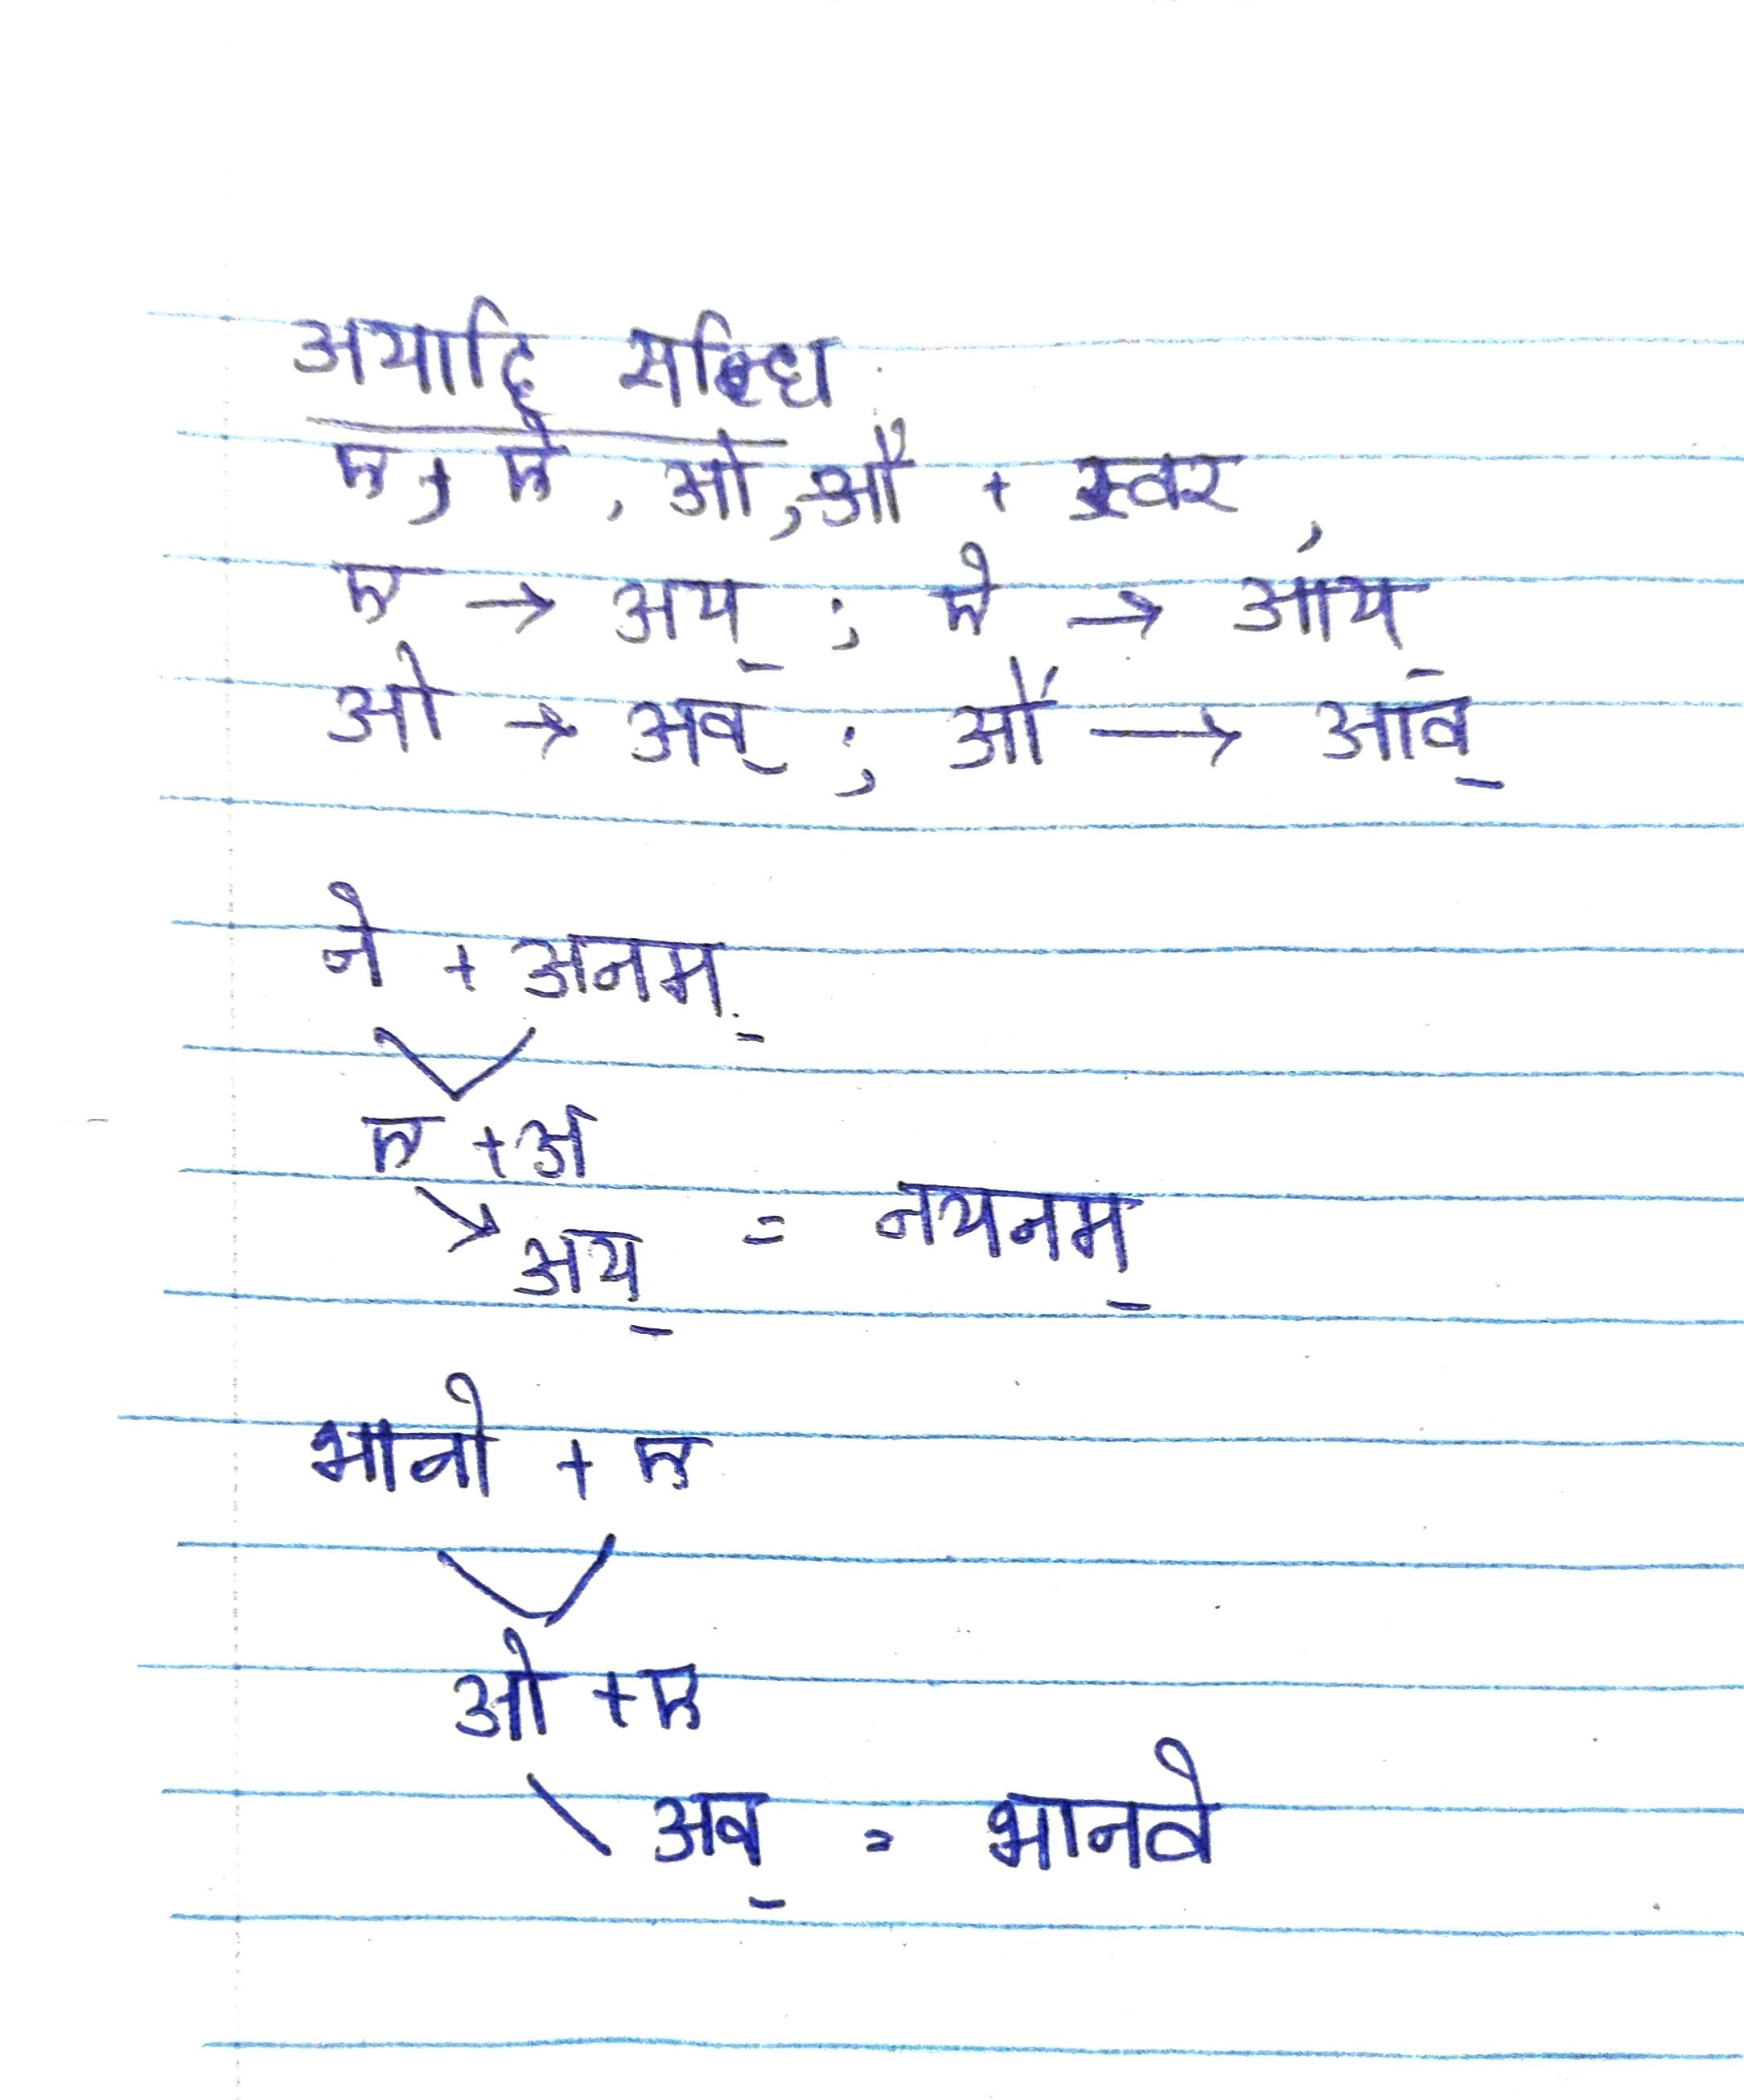 अयादि सन्धि
ए, ऐ, ओ, औ + स्वर,
ए → अय् ; ऐ → आय्
ओ → अव् ; औ → आव्
ने + अनम्
ए + अ
अय् = नयनम्
भानो + ए
ओ + ए
अव् = भानवे